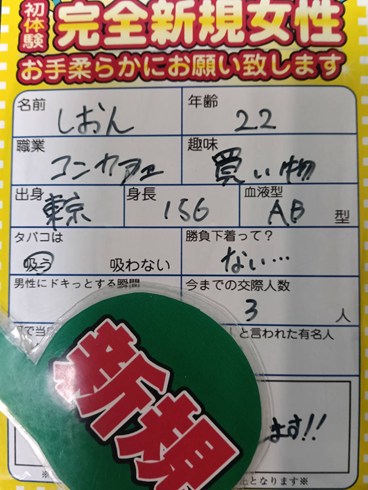 初体験
完全新規女性
お手柔らかにお願い致します
名前 しおん 年齢 22
職業 コンカフェ 趣味 買い物
出身 東京 身長 156 血液型 AB 型
タバコは 吸う 吸わない 勝負下着って? ない…
男性にドキっとする瞬間 今までの交際人数 3 人
と言われた有名人
新規
ます!!
となります※